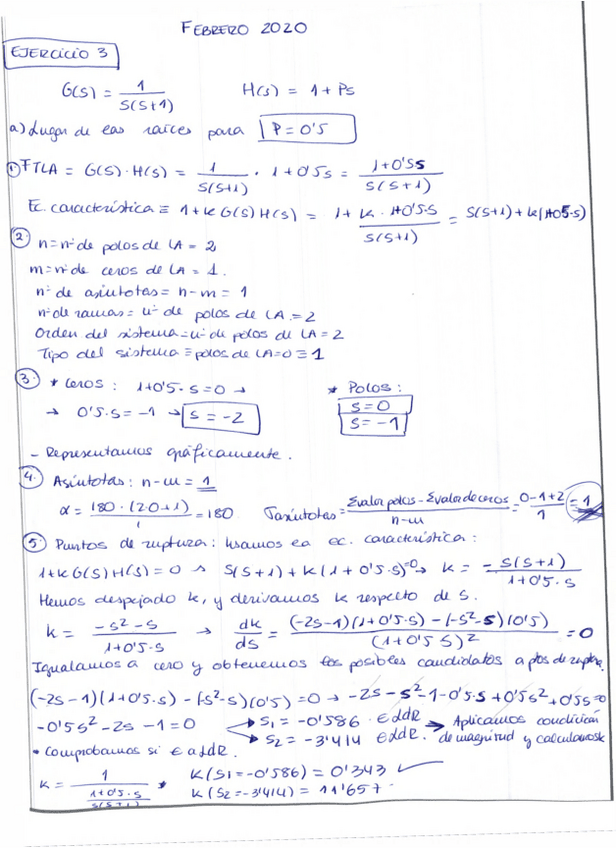 FEBRERO 2020
EJERCICIO 3
G(S) = 1/S(S+1) H(s) = 1 + Ps
a) Lugar de las raíces para P = 0'5
① FTLA = G(S) · H(S) = 1/S(S+1) · 1 + 0'5s = 1+0'5S/S(S+1)
Ec. característica ≡ 1+K G(S) H(S) = 1 + K · 1+0'5·S/S(S+1) = S(S+1) + K(1+05·s)
② n = nº de polos de LA = 2
m = nº de ceros de LA = 1.
nº de asíntotas = n-m = 1
nº de ramas = nº de polos de LA = 2
Orden del sistema = nº de polos de LA = 2
Tipo del sistema ≡ polos de LA=0 ≡ 1
③ * Ceros : 1+0'5·s=0 → * Polos :
→ 0'5·s = -1 → s = -2 s=0
s= -1
- Representamos gráficamente.
④ Asíntotas : n-m = 1
α = 180·(2·0+1)/1 = 180 Γasíntotas = Σvalor polos - Σvalor de ceros/n-m = 0-1+2/1 = 1
⑤ Puntos de ruptura : usamos la ec. característica :
1+K G(S) H(S) = 0 → S(S+1) + K(1+0'5·s)=0 → K = - S(S+1)/1+0'5·s
Hemos despejado K, y derivamos K respecto de S.
K = -s²-s/1+0'5·s → dK/ds = (-2s-1)(1+0'5·s) - (-s²-s)(0'5)/(1+0'5 S)² = 0
Igualamos a cero y obtenemos los posibles candidatos a ptos de ruptura.
(-2s-1)(1+0'5·s) - (-s²-s)(0'5) = 0 → -2s-s²-1-0'5·s+0'5s²+0'5s=0
-0'5s²-2s-1=0 → S₁ = -0'586 · ∈ LdR → Aplicamos condición
→ S₂ = -3'414 ∈ LdR. de magnitud y calculamos K
* Comprobamos si ∈ al LdR.
K = 1/(1+0'5·s/S(S+1)) * K(S1=-0'586) = 0'343 ✓
K(S2=-3'414) = 11'657